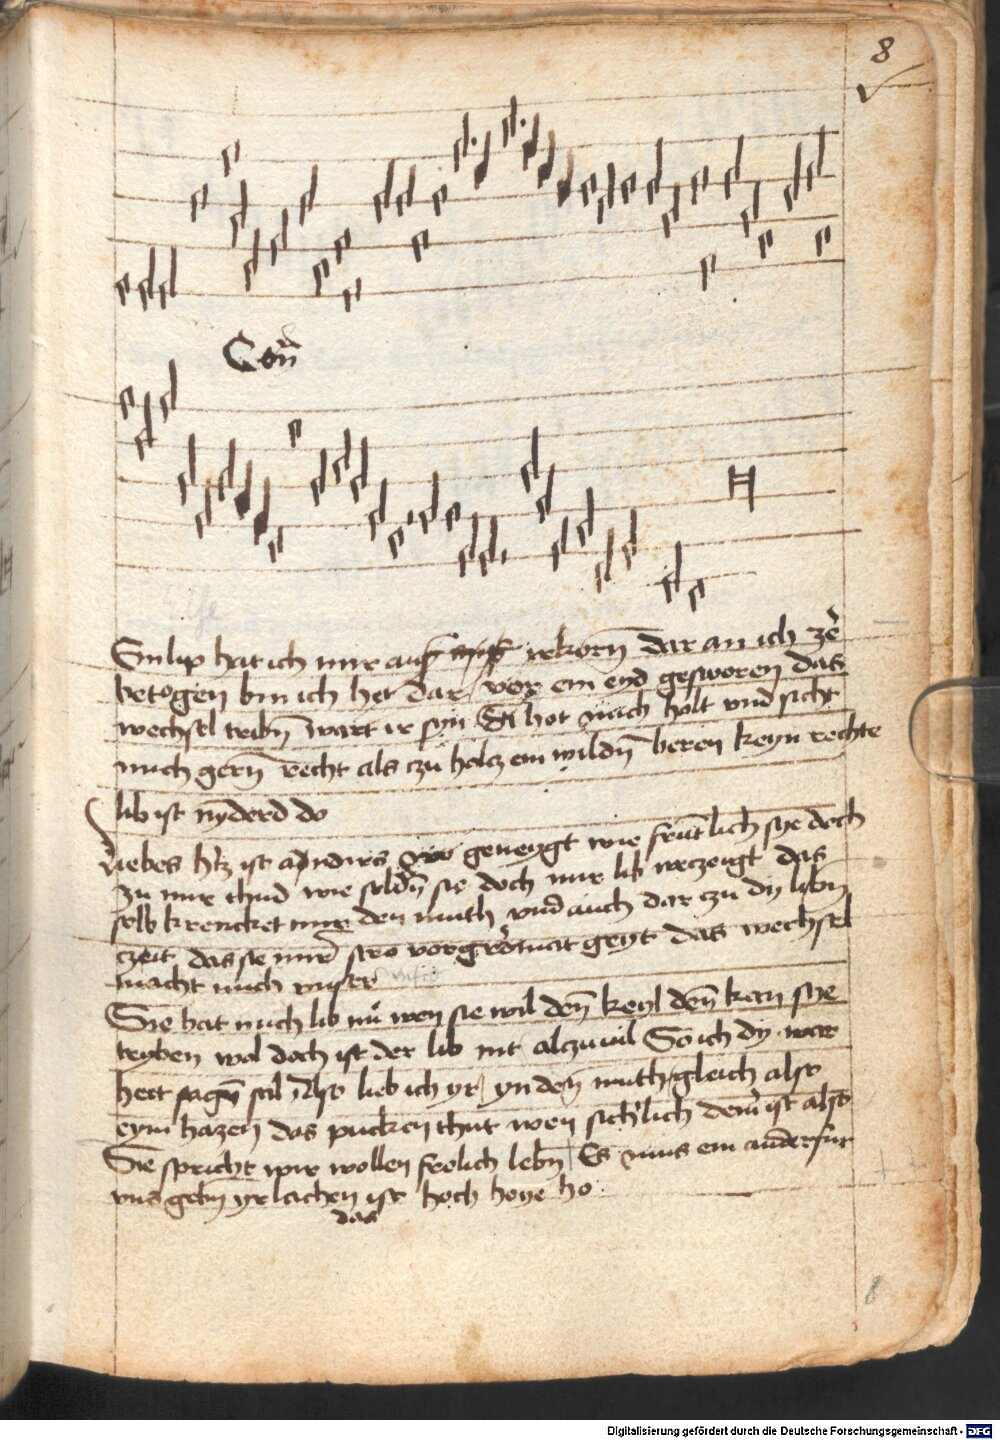 8
Con̄
Ein lip hat ich mir auß erkorn̄ dar an ich
betogen bin ich het dar vor ein eyd gesworen das
wechsel wart ir syn Si hot nach holt vnd sicht
mich gern̄ recht als czu holcz ein wildn̄ beren keyn rechte
lib ist nyderd do
Liebes h'tz ist geneygt wie fruntlich sye doch
zu mir thud wie seldn̄ sie doch mir lib erczeigt das
selb krencket mir den muth vnd auch dar czu dy libn̄
czeit das sie mir so geyt das wechsel
macht mich
Sie hat mich lib nu wen sie wil den̄ keyl den̄ kan sye
treyben wol doch ist der lib nit alczu vil So ich dy war
heit sagn̄ sal Also lieb ich yr yn den muth gleich also
eym hazen das pucken thut wen sich'lich dem ist also
Sie spricht wir wollen frolich lebn̄ Es mus ein ander fur
vns gebn̄ yr lachen ist hoch hoye ho
das
8
Digitalisierung gefördert durch die Deutsche Forschungsgemeinschaft - DFG